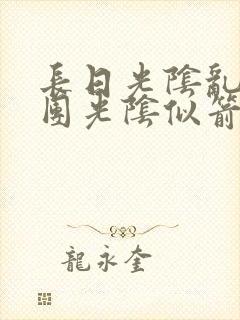 長日光陰亂
園光陰似箭
龍永奎